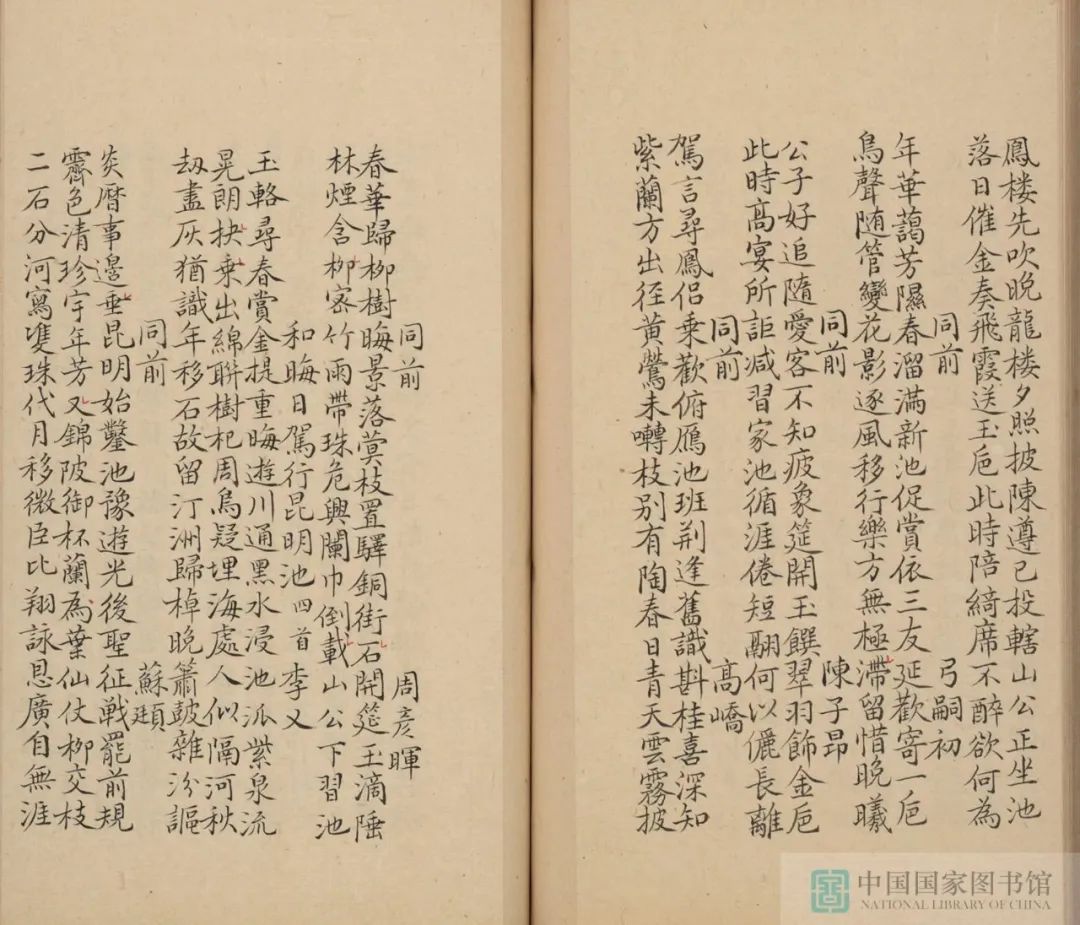 鳳楼先吹晚龍楼夕照披陳遵已投轄山公正坐池
落日催金奏飛霞送玉巵此時陪綺席不醉欲何為
同前 弓嗣初
年華藹芳隰春溜滿新池促賞依三友延歡寄一巵
鳥聲随管變花影逐風移行樂方無極滯留惜晚曦
同前 陳子昂
公子好追隨愛客不知疲象筵開玉饌翠羽飾金巵
此時高宴所詎減習家池循涯倦短翮何以儷長離
同前 高嶠
駕言尋鳳侣乗歡俯鴈池班荆逢舊識斟桂喜深知
紫蘭方出徑黄鶯未囀枝别有陶春日青天雲霧披
同前 周彦暉
春華歸柳樹晦景落蓂枝置驛銅街石開筵玉滴陲
林煙含栁宻竹雨帶珠危興闌巾倒載山公下習池
和晦日駕行昆明池四首 李乂
玉輅尋春賞金提重晦遊川通黑水浸池派紫泉流
晃朗抉乗出綿聯樹杞周烏疑埋海處人似隔河秋
刼盡灰猶識年移石故留汀洲歸棹晚簫皷雜汾謳
同前 蘇頲
炎暦事邊垂昆明始鑿池豫遊光後聖征戦罷前規
霽色清珍宇年芳又錦陂御杯蘭為葉仙仗栁交枝
二石分河寫雙珠代月移微臣比翔詠恩廣自無涯
中国国家图书馆
NATIONAL LIBRARY OF CHINA